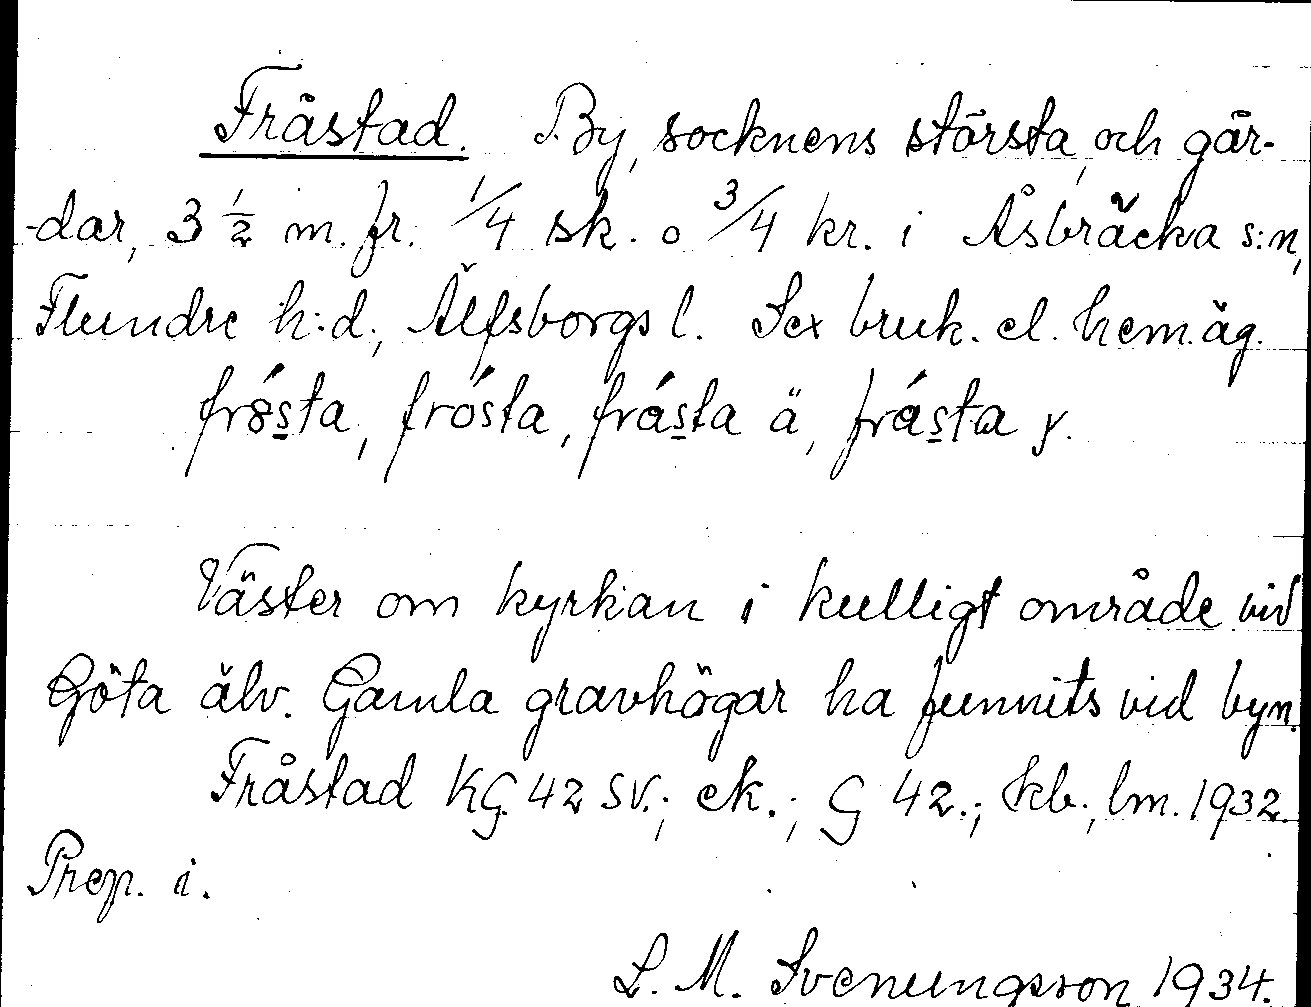 Fråstad. By, socknens största, och går-
-dar, 3 1/2 m. fr. 1/4 sk. o 3/4 kr. i Åsbräcka s:n,
Flundre h:d, Älfsborgs l. Sex bruk. el. hem.äg.
frósta, frósta, frásta ä, frásta y.
Väster om kyrkan i kulligt område vid
Göta älv. Gamla gravhögar ha funnits vid byn.
Fråstad KG 42 SV.; ek.; G 42.; kb., lm. 1932.
Prep. i.
L. M. Svenungsson 1934.